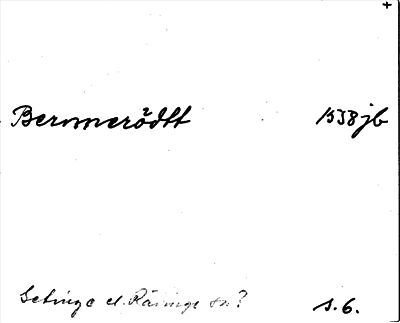 Bermerödtt 1538 jb
Setinge el. Räringe sn?
s. 6.